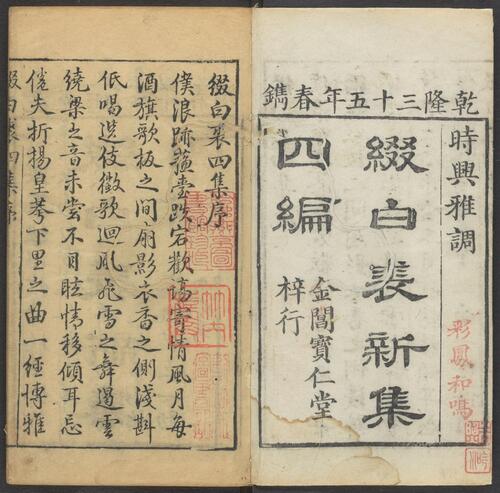 乾隆三十五年春鐫
時興雅調
綴白裘新集
四編
金閶寶仁堂
梓行
彩鳳和鳴
綴白裘四集序
僕浪跡蘓臺跌宕歡場寄情風月每
酒旗歌板之間扇影衣香之側淺斟
低唱選伎徵歌迴風飛雪之舞遏雲
繞梁之音未嘗不目眩情移傾耳忘
倦夫折揚皇荂下里之曲一經博雅